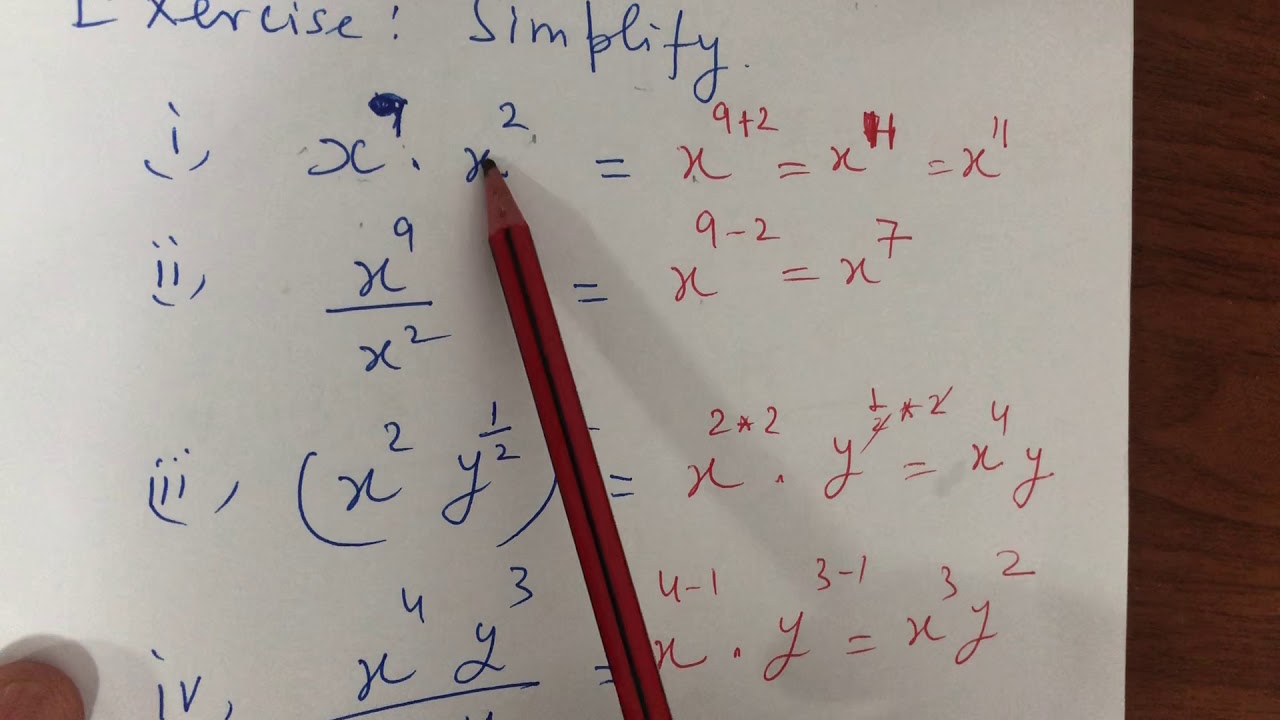 Exercise: Simplify.
i) x⁹ · x² = x⁹⁺² = x¹¹ = x¹¹
ii) x⁹/x² = x⁹⁻² = x⁷
iii) (x² y^(1/2)) = x^(2*2) · y^(1/2*2) = x⁴y
iv) x⁴y³ = x⁴⁻¹ · y³⁻¹ = x³y²